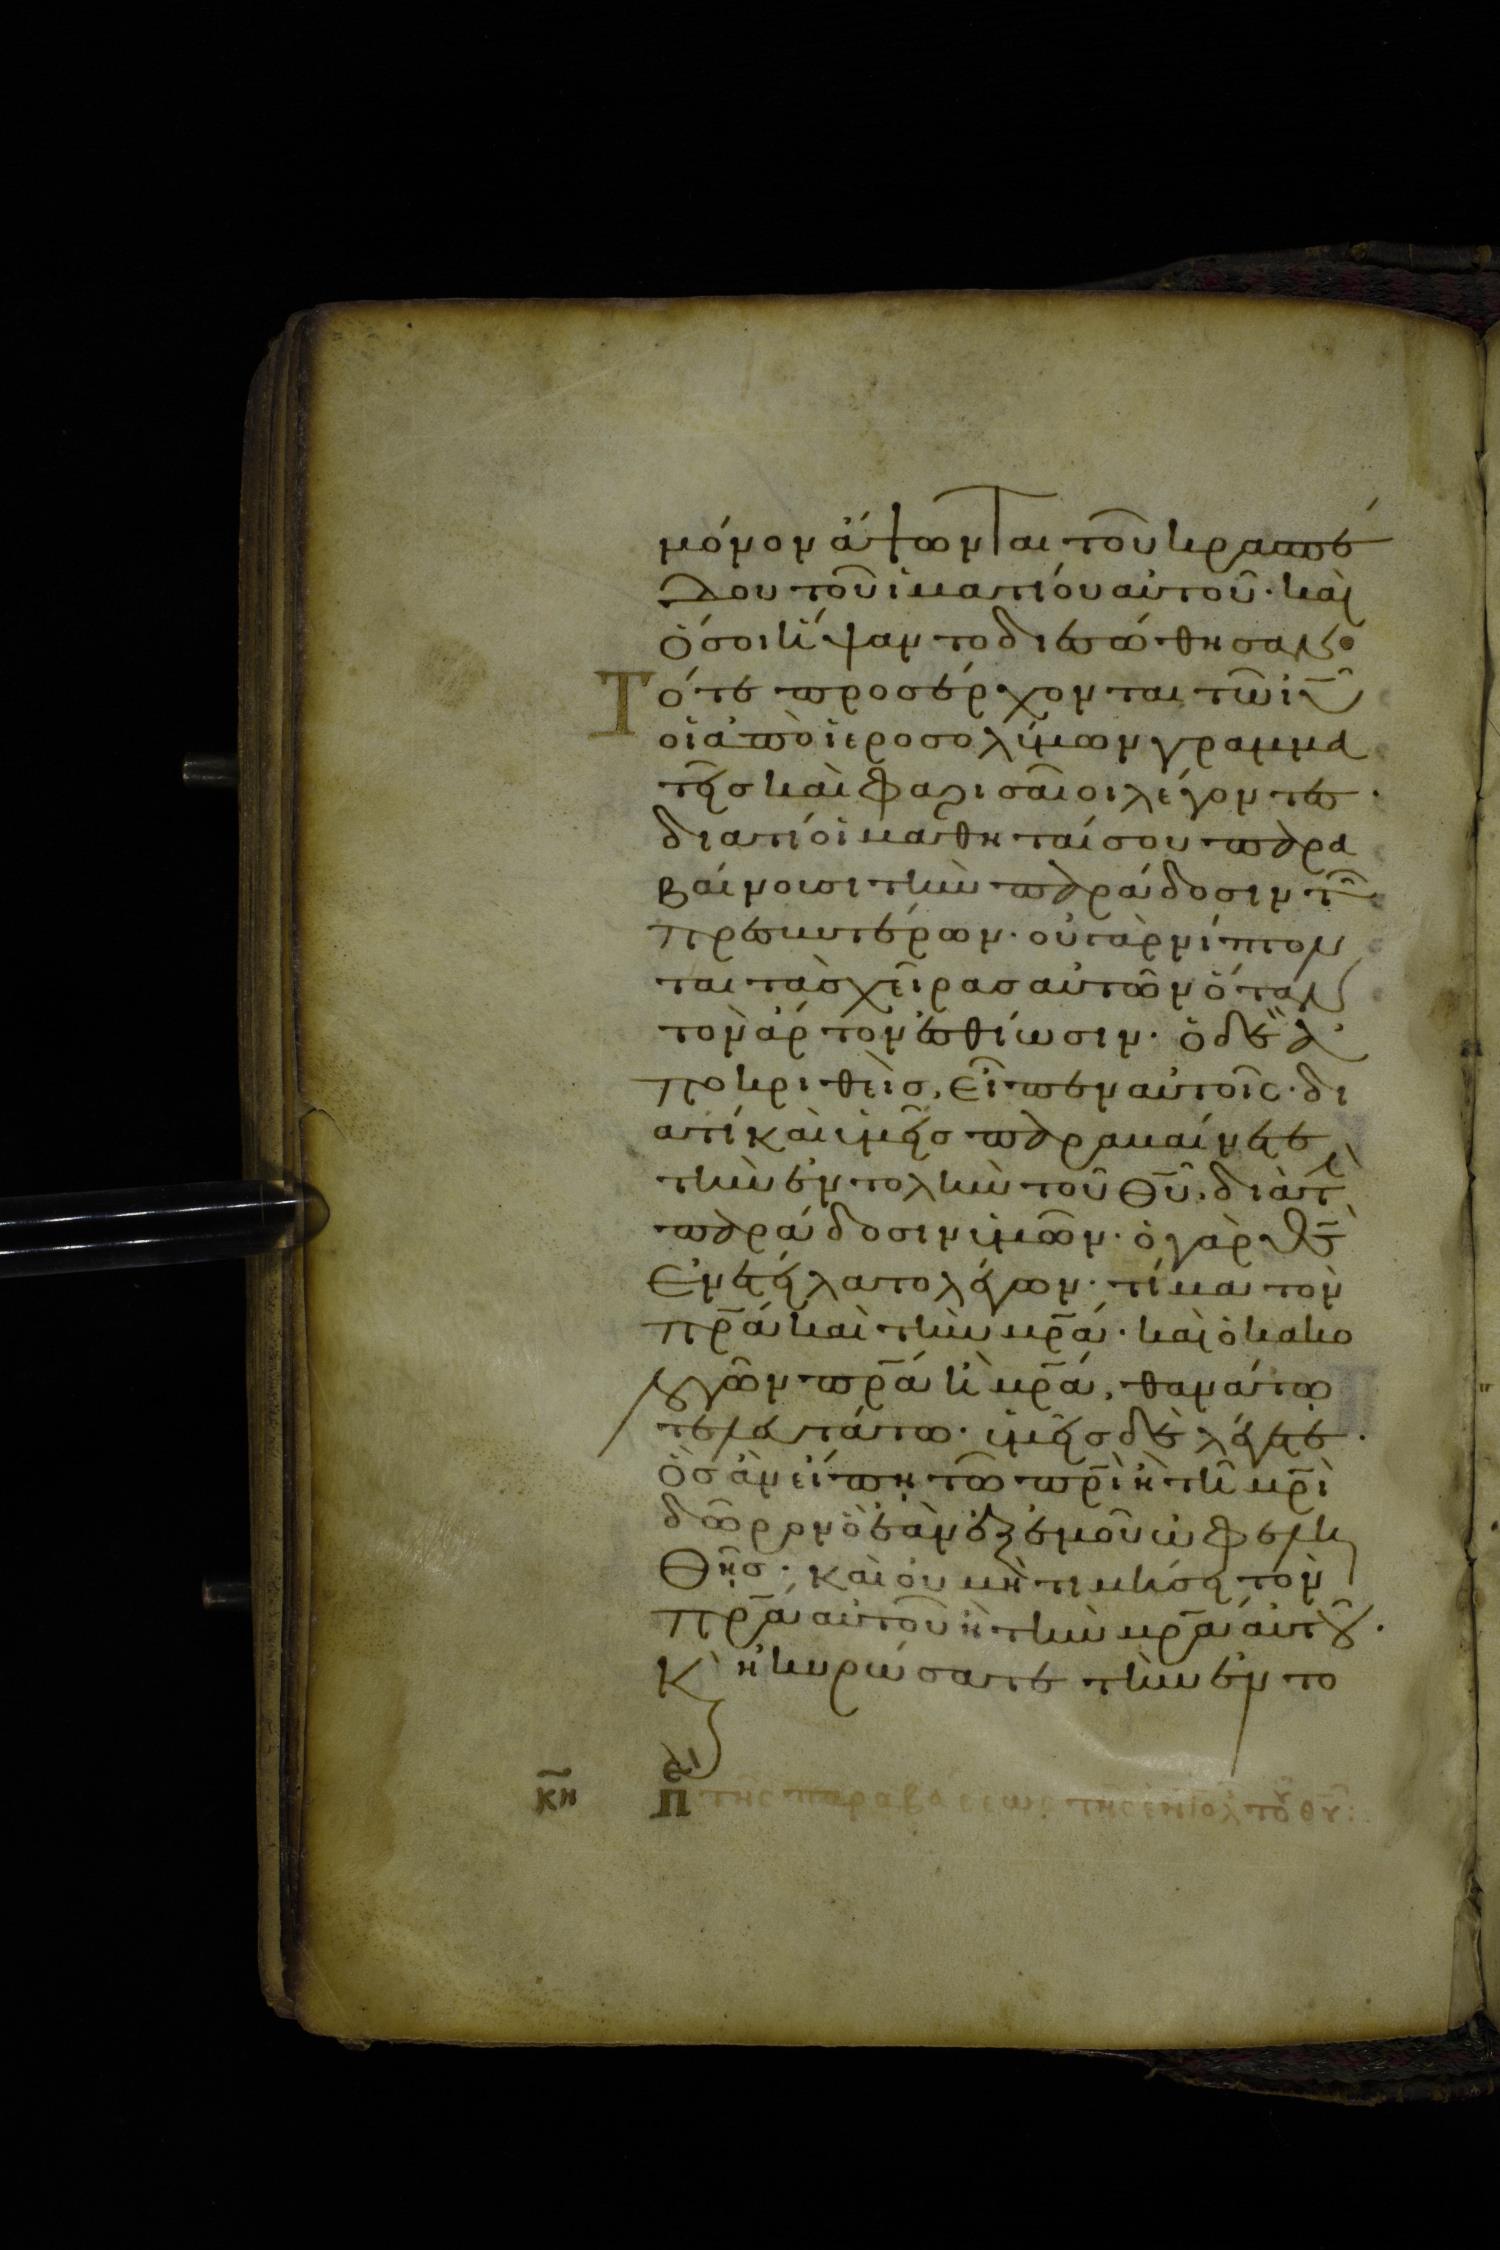 μόνον ἅψωνται τοῦ κρασπέ
δου τοῦ ἱματίου αὐτοῦ· καὶ
ὅσοι ἥψαντο διεσώθησαν·
Τότε προσέρχονται τῶ ἰῦ
οἱ ἀπὸ ἱεροσολύμων γραμμα
τεῖς καὶ φαρισαῖοι λέγοντες·
διατί οἱ μαθηταί σου παρα
βαίνουσι τὴν παράδοσιν τῶν
πρεσβυτέρων· οὐ γὰρ νίπτον
ται τὰς χεῖρας αὐτῶν ὅταν
τὸν ἄρτον ἐσθίωσιν· ὁ δὲ ἀ
ποκριθεὶς, εἶπεν αὐτοῖς· δι
ατί καὶ ὑμεῖς παραβαίνετε
τὴν ἐντολὴν τοῦ θῦ, διὰ τὴν
παράδοσιν ὑμῶν· ὁ γὰρ θς
ἐνετείλατο λέγων· τίμα τὸν
πρα καὶ τὴν μρα· καὶ ὁ κακο
λογῶν πρα ἢ μρα, θανάτω
τελευτάτω· ὑμεῖς δὲ λέγετε·
ὃς ἂν εἴπη τῶ πρὶ ἢ τῆ μρὶ
δῶρον ὃ ἐὰν ἐξ ἐμοῦ ὠφελη
θῆς· καὶ οὐ μὴ τιμήσει τὸν
πρα αὐτοῦ ἢ τὴν μρα αὐτοῦ·
κ ἠκυρώσατε τὴν ἐντο
κη Πε τῆς παραβάσεως τῆς ἐντολ τοῦ θῦ: